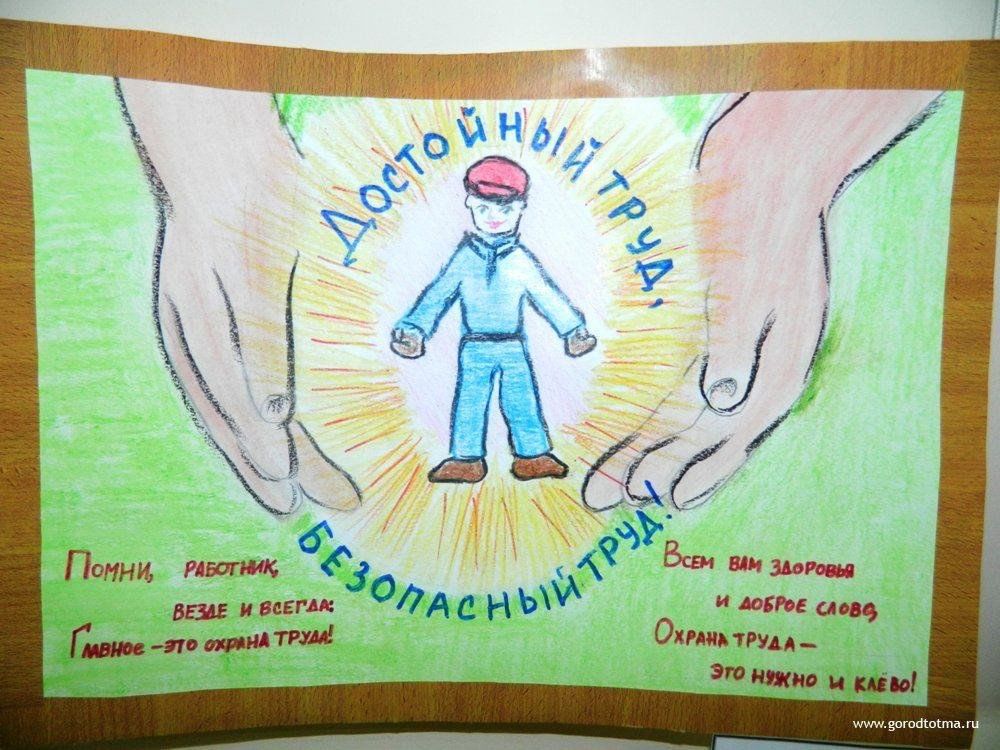 Достойный труд,
безопасный труд!
Помни, работник,
везде и всегда:
Главное - это охрана труда!
Всем вам здоровья
и доброе слово,
Охрана труда -
это нужно и клёво!
www.gorodtotma.ru